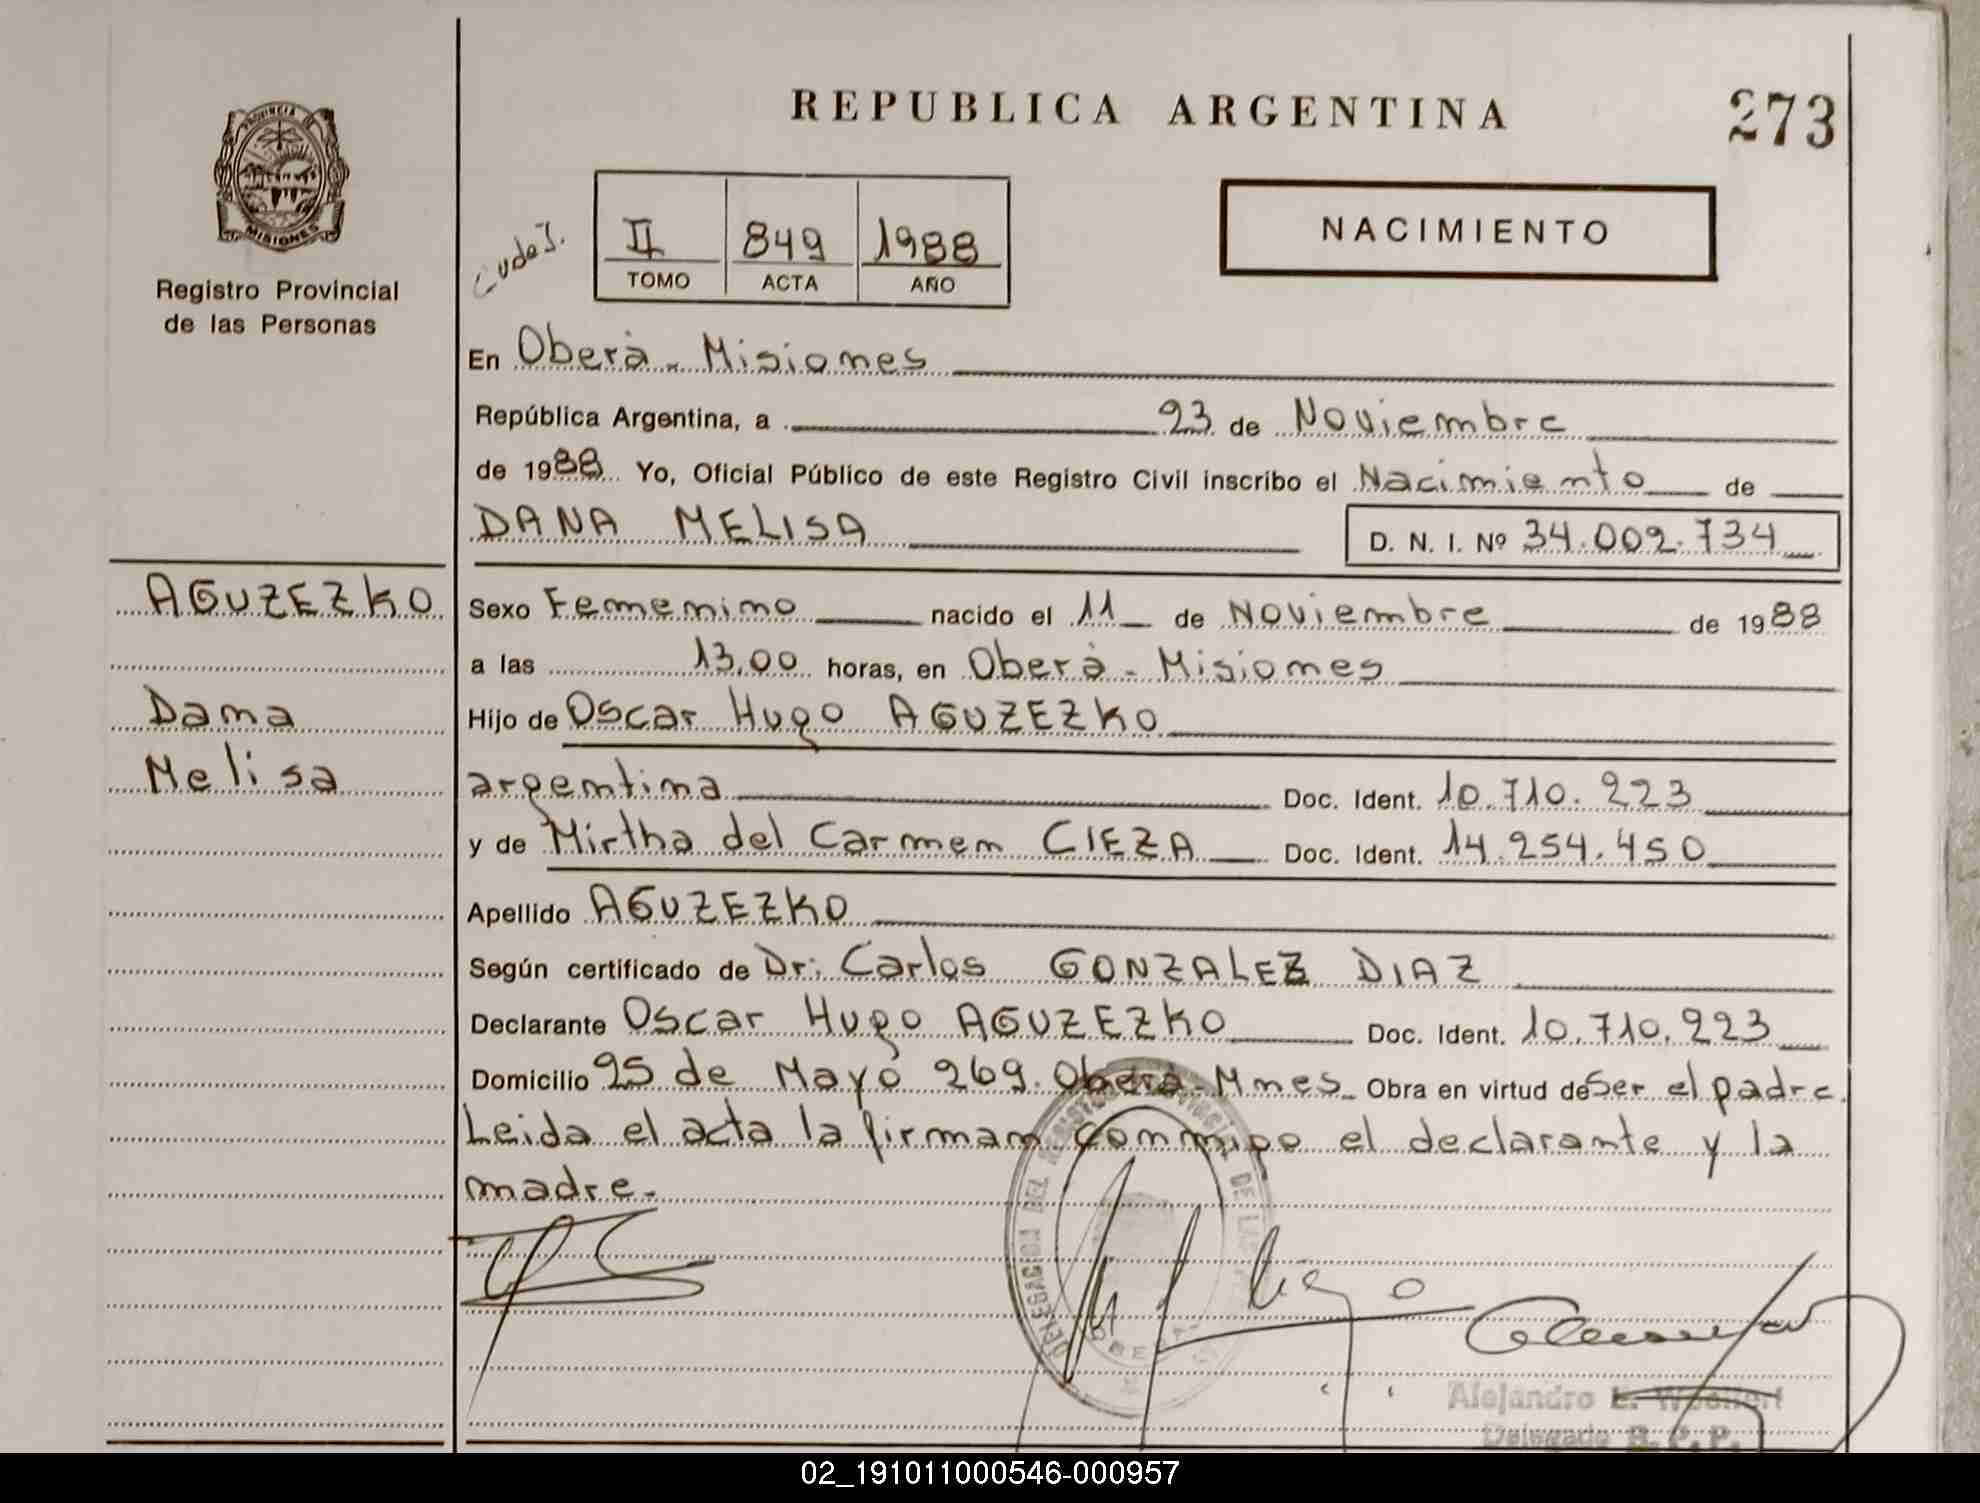 REPUBLICA ARGENTINA
273
PROVINCIA
MISIONES
Registro Provincial
de las Personas
II 849 1988
TOMO ACTA AÑO
NACIMIENTO
En Oberá - Misiones
República Argentina, a 23 de Noviembre
de 1988 Yo, Oficial Público de este Registro Civil inscribo el Nacimiento de
DANA MELISA D. N. I. Nº 34.002.734
AGUZEZKO
Dana
Melisa
Sexo Femenino nacido el 11 de Noviembre de 1988
a las 13,00 horas, en Oberá - Misiones
Hijo de Oscar Hugo AGUZEZKO
argentina Doc. Ident. 10.710.223
y de Mirtha del Carmen CIEZA Doc. Ident. 14.254.450
Apellido AGUZEZKO
Según certificado de Dr: Carlos GONZALEZ DIAZ
Declarante Oscar Hugo AGUZEZKO Doc. Ident. 10.710.223
Domicilio 25 de Mayo 269. Oberá - Mnes Obra en virtud de Ser el padre.
Leida el acta la firman conmigo el declarante y la
madre.
Alejandro E.
Delegado R. P. P.
02_191011000546-000957